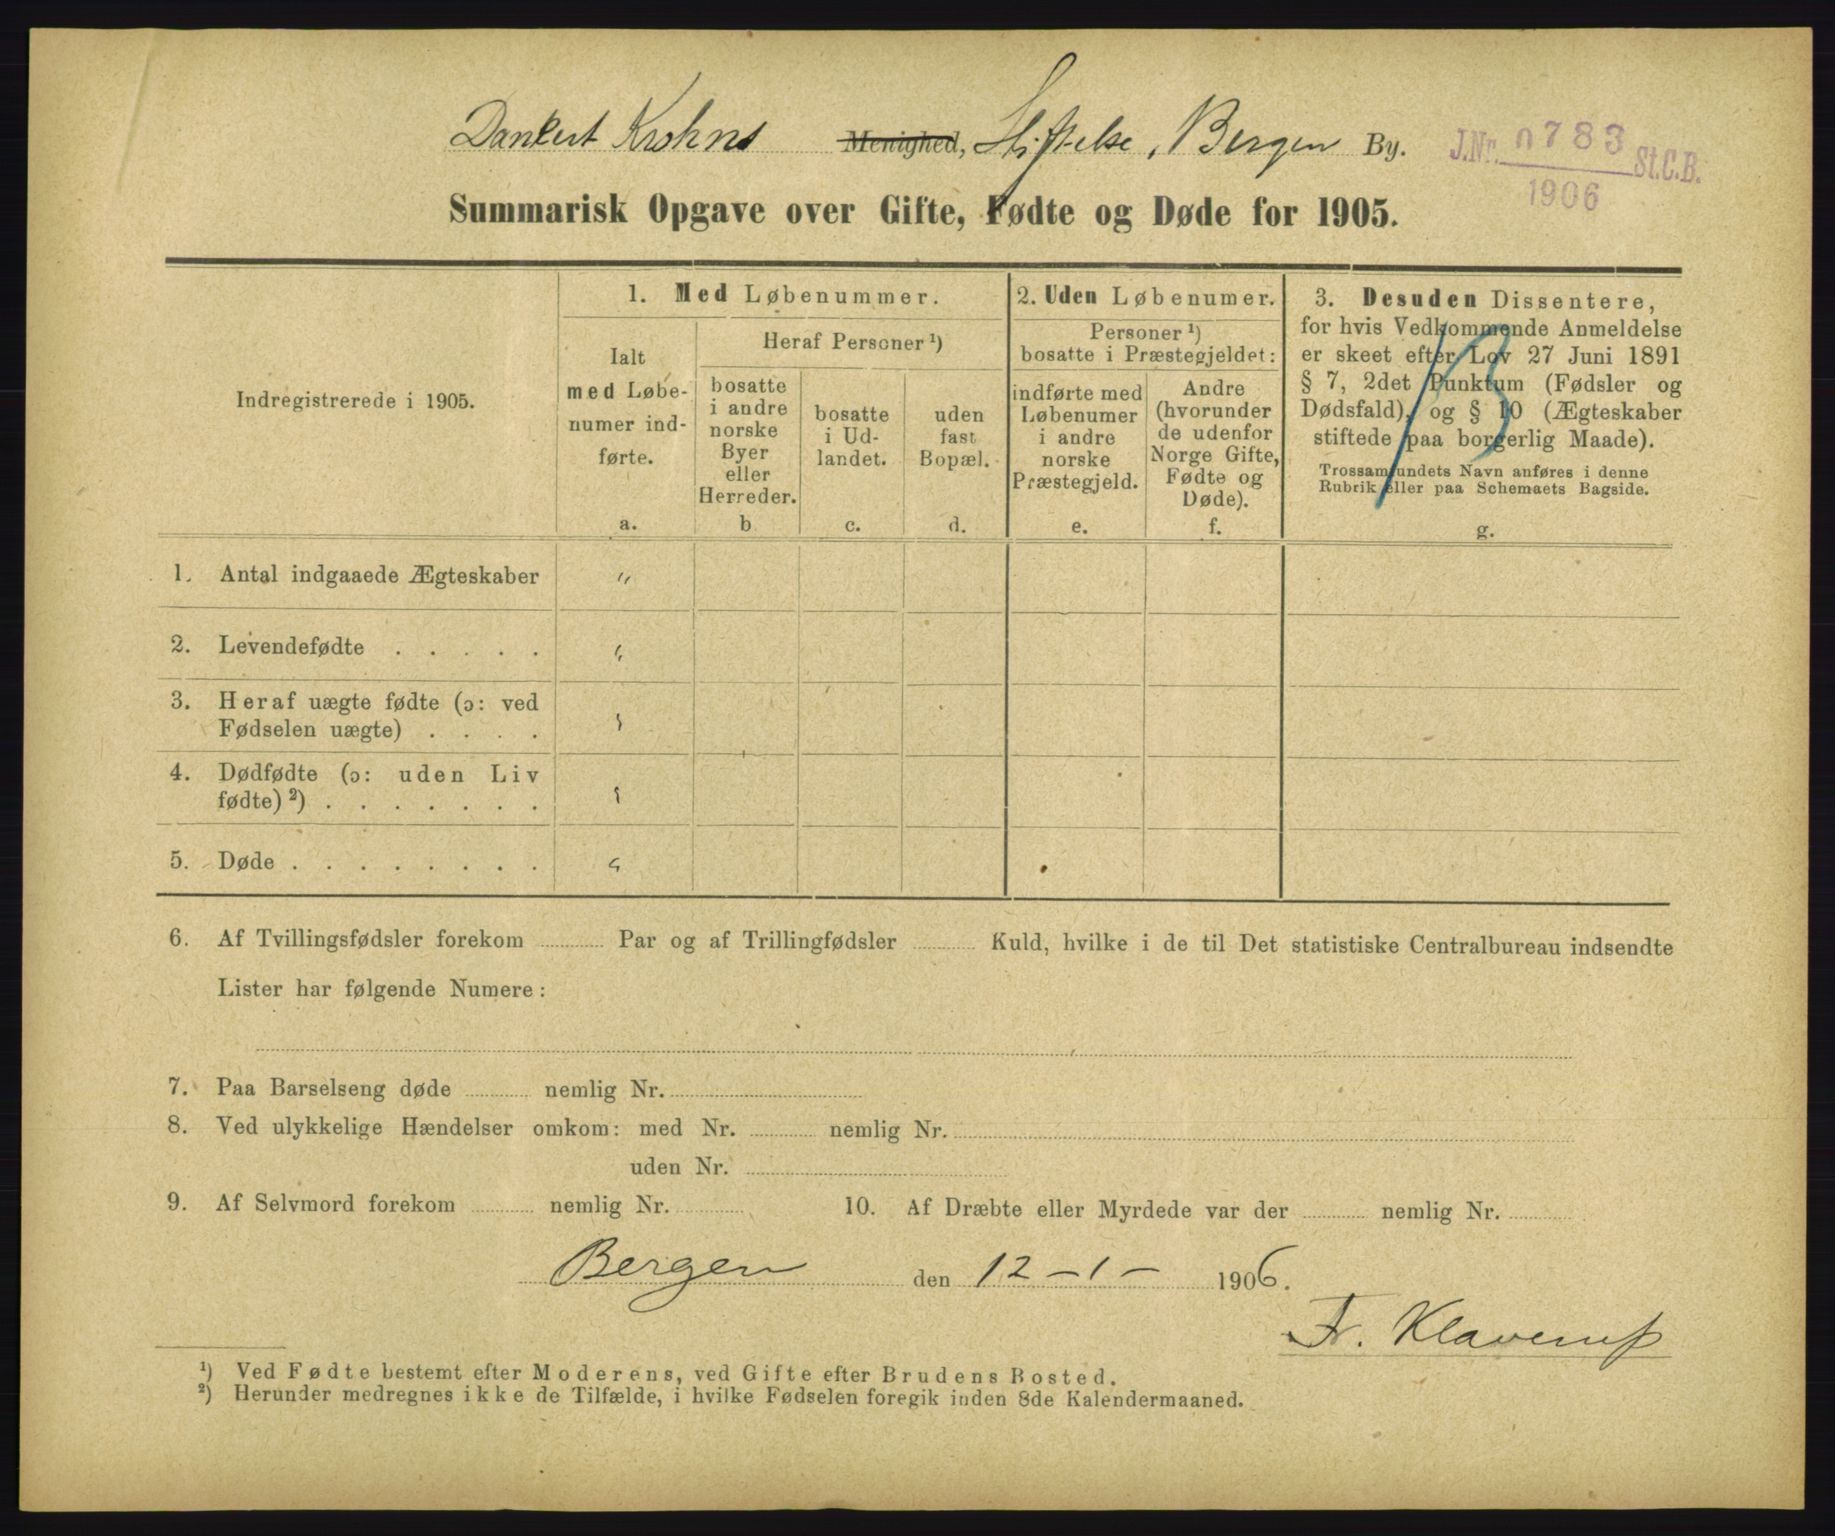 Dankert Krohns Menighed, Stiftelse, Bergen By.
J.Nr. 0783 St.C.B.
1906
Summarisk Opgave over Gifte, Fødte og Døde for 1905.
Indregistrerede i 1905.
1. Med Løbenummer.
Ialt
med Løbe-
numer ind-
førte.
a.
Heraf Personer ¹)
bosatte
i andre
norske
Byer
eller
Herreder.
b
bosatte
i Ud-
landet.
c.
uden
fast
Bopæl.
d.
2. Uden Løbenumer.
Personer ¹)
bosatte i Præstegjeldet:
indførte med
Løbenumer
i andre
norske
Præstegjeld.
e.
Andre
(hvorunder
de udenfor
Norge Gifte,
Fødte og
Døde).
f.
3. Desuden Dissentere,
for hvis Vedkommende Anmeldelse
er skeet efter Lov 27 Juni 1891
§ 7, 2det Punktum (Fødsler og
Dødsfald), og § 10 (Ægteskaber
stiftede paa borgerlig Maade).
Trossamfundets Navn anføres i denne
Rubrik eller paa Schemaets Bagside.
g.
1. Antal indgaaede Ægteskaber "
2. Levendefødte . . . . . "
3. Heraf uægte fødte (ɔ: ved
Fødselen uægte) . . . .
4. Dødfødte (ɔ: uden Liv
fødte) ²) . . . . . . .
5. Døde . . . . . . . .
6. Af Tvillingsfødsler forekom Par og af Trillingfødsler Kuld, hvilke i de til Det statistiske Centralbureau indsendte
Lister har følgende Numere:
7. Paa Barselseng døde nemlig Nr.
8. Ved ulykkelige Hændelser omkom: med Nr. nemlig Nr.
uden Nr.
9. Af Selvmord forekom nemlig Nr. 10. Af Dræbte eller Myrdede var der nemlig Nr.
Bergen den 12 - 1 - 1906.
Fr. Klaverup
¹) Ved Fødte bestemt efter Moderens, ved Gifte efter Brudens Bosted.
²) Herunder medregnes ikke de Tilfælde, i hvilke Fødselen foregik inden 8de Kalendermaaned.